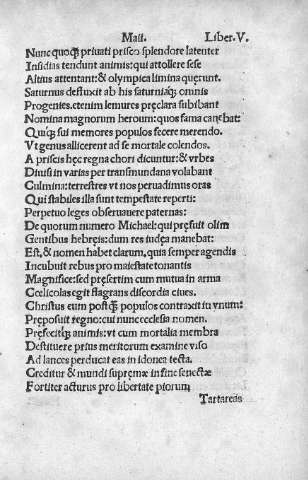 Maii. Liber.V.
Nunc quoqꝫ priuati prisco splendore latenter
Insidias tendunt animis: qui attollere sese
Altius attentant: & olympica limina querunt.
Saturnus defluxit ab his saturniaqꝫ omnis
Progenies. etenim lemures pręclara subibant
Nomina magnorum heroum: quos fama canebat:
Quicqꝫ sui memores populos fecere merendo.
Vt genus allicerent ad se mortale colendos.
A priscis hęc regna chori dicuntur: & vrbes
Diuisi in varias per transmundana volabant
Culmina: terrestres vt nos peruadimus oras
Qui stabiles illa sunt tempestate reperti:
Perpetuo leges obseruauere paternas:
De quorum numero Michael: qui pręfuit olim
Gentibus hebręis: dum res iudęa manebat:
Est, & nomen habet clarum, quia semper agendis
Incubuit rebus pro maiestate tonantis
Magnifice: sed pręsertim cum mutua in arma
Cœlicolas egit flagrans discordia ciues.
Christus eum postqꝫ populos contraxit in vnum:
Pręposuit regno: cui nunc ecclesia nomen.
Pręfecitqꝫ animis: vt cum mortalia membra
Destituere prius meritorum examine viso
Ad lances perducat eas in idonea tecta.
Creditur & mundi supremæ in fine senectæ
Fortiter acturus pro libertate piorum
Tartareas